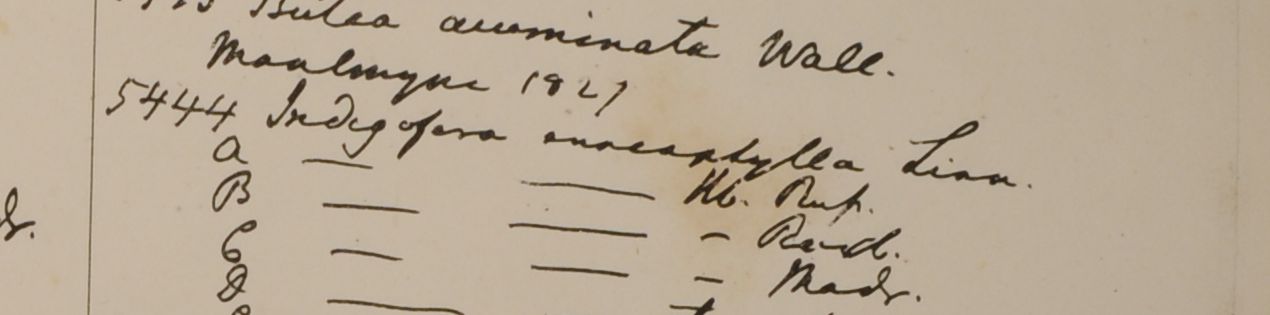 Butea acuminata Wall.
Moulmyne 1827
5444 Indigofera enneaphylla Linn.
a — — Hb. Rup.
B — — - Roxd.
C — — - Madr.
D —
dr.